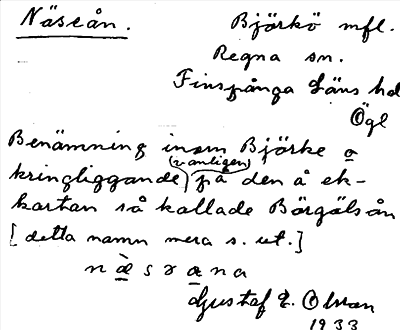 Näseån.
Björkö mfl.
Regna sn.
Finspånga Läns hd
Ögl
Benämning inom Björke o
(vanligen)
kringliggande på den å ek-
kartan så kallade Börgälsån
[detta namn mera s. ut.]
næsrana
Gustaf E. Olsson
1933